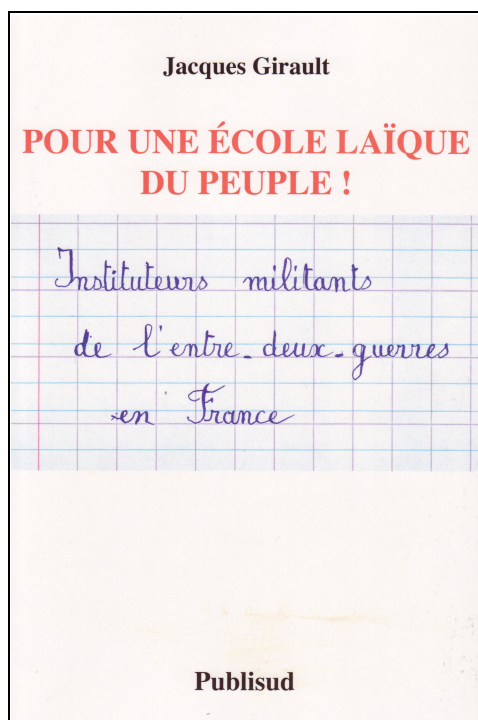 Jacques Girault
POUR UNE ÉCOLE LAÏQUE
DU PEUPLE !
Instituteurs militants
de l'entre-deux-guerres
en France
Publisud